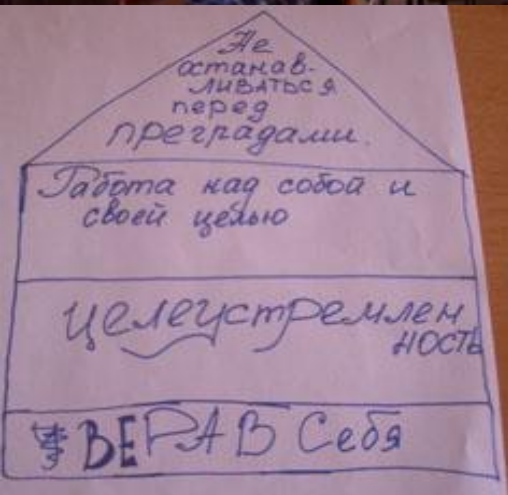 Не
останав-
ливаться
перед
преградами.
Работа над собой и
своей целью
целеустремлен
ность
ВЕРА В Себя